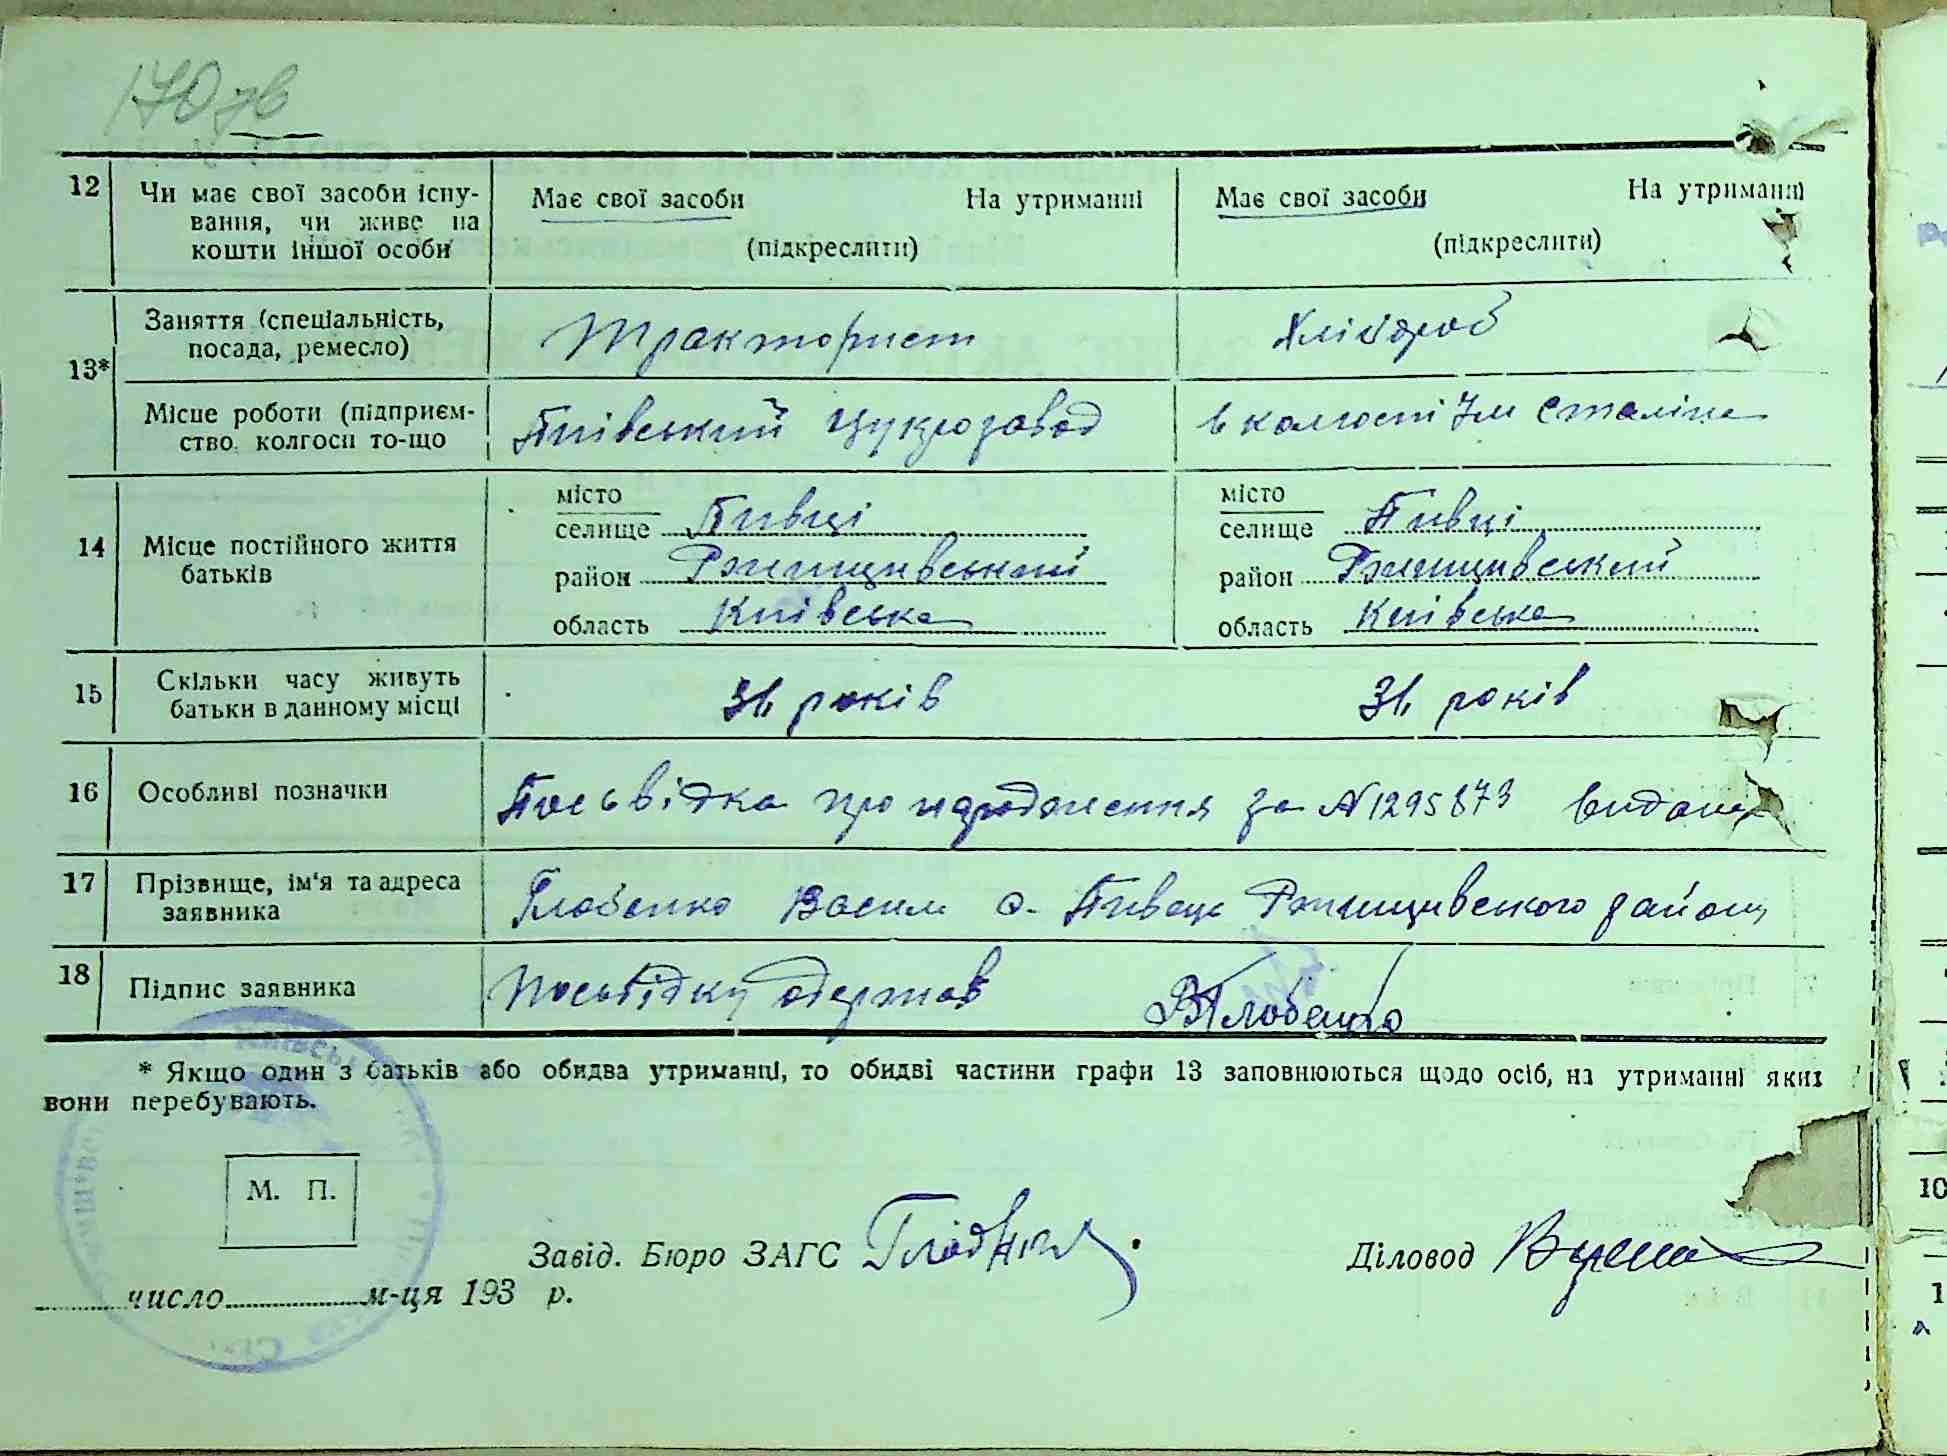 170 зв
12 Чи має свої засоби існу-
вання, чи живе на
кошти іншої особи
Має свої засоби На утриманні
(підкреслити)
Має свої засоби На утриманні
(підкреслити)
13* Заняття (спеціальність,
посада, ремесло)
Тракторист
Хлібороб
Місце роботи (підприєм-
ство, колгосп то-що
цукрозавод
в колгоспі Ім Сталіна
14 Місце постійного життя
батьків
місто
селище Пивці
район Ржищивський
область Київська
місто
селище Пивці
район Ржищивський
область Київська
15 Скільки часу живуть
батьки в данному місці
31 років
31 років
16 Особливі позначки
Посьвідка про народження за № 1295873 видана
17 Прізвище, ім'я та адреса
заявника
Глобенко Василь с. Пивець Ржищивського району
18 Підпис заявника
Посьвідку одержав
ВГлобенко
* Якщо один з батьків або обидва утриманці, то обидві частини графи 13 заповнюються щодо осіб, на утриманні яких
вони перебувають.
М. П.
Завід. Бюро ЗАГС
Діловод
число м-ця 193 р.